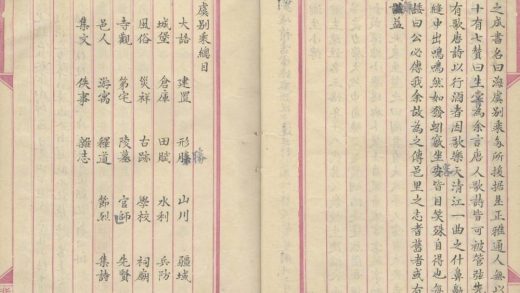 之成書名曰海虞別乘多所援据是正雅通人無以
十有七贊曰生嘗為余言唐人歌詩皆可被管弦先
有歌唐詩以行酒者因歌樂天清江一曲之什鼻
縫中出嗚嗚然如發蚓竅生皆目笑殊自得也每
曰公必傳我余故為之傳邑里之志者舊者或有
益
虞別乘總目
大語 建置 形勝 山川 疆域
城堡 倉庫 田賦 水利 兵防
風俗 災祥 古跡 學校 祠廟
寺觀 第宅 陵墓 官師 先賢
邑人 游寓 釋道 節烈 集詩
集文 佚事 雜志